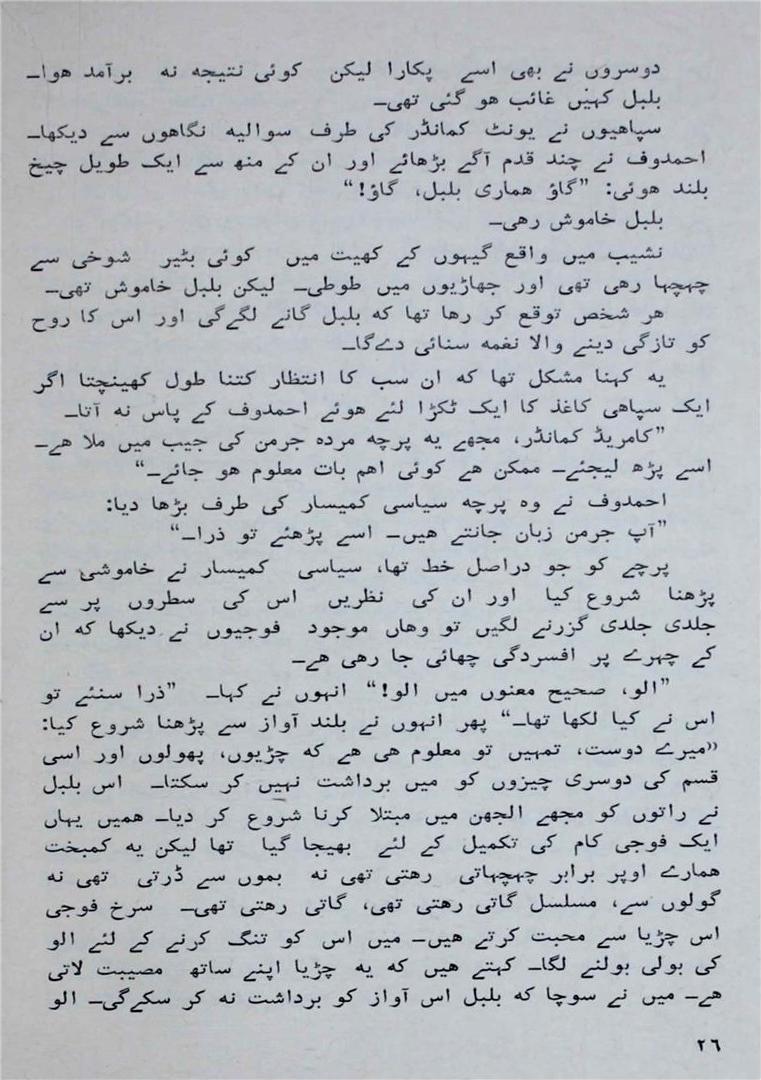 دوسروں نے بھی اسے پکارا لیکن کوئی نتیجہ نہ برآمد ہوا۔
بلبل کہیں غائب ہو گئی تھی۔
سپاہیوں نے یونٹ کمانڈر کی طرف سوالیہ نگاہوں سے دیکھا۔
احمدوف نے چند قدم آگے بڑھائے اور ان کے منھ سے ایک طویل چیخ
بلند ہوئی: ”گاؤ ہماری بلبل، گاؤ!“
بلبل خاموش رہی۔
نشیب میں واقع گیہوں کے کھیت میں کوئی بٹیر شوخی سے
چہچہا رہی تھی اور جھاڑیوں میں طوطی۔ لیکن بلبل خاموش تھی۔
ہر شخص توقع کر رہا تھا کہ بلبل گانے لگےگی اور اس کا روح
کو تازگی دینے والا نغمہ سنائی دےگا۔
یہ کہنا مشکل تھا کہ ان سب کا انتظار کتنا طول کھینچتا اگر
ایک سپاہی کاغذ کا ایک ٹکڑا لئے ہوئے احمدوف کے پاس نہ آتا۔
”کامریڈ کمانڈر، مجھے یہ پرچہ مردہ جرمن کی جیب میں ملا ہے۔
اسے پڑھ لیجئے۔ ممکن ہے کوئی اہم بات معلوم ہو جائے۔“
احمدوف نے وہ پرچہ سیاسی کمیسار کی طرف بڑھا دیا:
”آپ جرمن زبان جانتے ہیں۔ اسے پڑھئے تو ذرا۔“
پرچے کو جو دراصل خط تھا، سیاسی کمیسار نے خاموشی سے
پڑھنا شروع کیا اور ان کی نظریں اس کی سطروں پر سے
جلدی جلدی گزرنے لگیں تو وہاں موجود فوجیوں نے دیکھا کہ ان
کے چہرے پر افسردگی چھائی جا رہی ہے۔
”الو، صحیح معنوں میں الو!“ انہوں نے کہا۔ ”ذرا سنئے تو
اس نے کیا لکھا تھا۔“ پھر انہوں نے بلند آواز سے پڑھنا شروع کیا:
«میرے دوست، تمہیں تو معلوم ہی ہے کہ چڑیوں، پھولوں اور اسی
قسم کی دوسری چیزوں کو میں برداشت نہیں کر سکتا۔ اس بلبل
نے راتوں کو مجھے الجھن میں مبتلا کرنا شروع کر دیا۔ ہمیں یہاں
ایک فوجی کام کی تکمیل کے لئے بھیجا گیا تھا لیکن یہ کمبخت
ہمارے اوپر برابر چہچہاتی رہتی تھی نہ بموں سے ڈرتی تھی نہ
گولوں سے، مسلسل گاتی رہتی تھی، گاتی رہتی تھی۔ سرخ فوجی
اس چڑیا سے محبت کرتے ہیں۔ میں اس کو تنگ کرنے کے لئے الو
کی بولی بولنے لگا۔ کہتے ہیں کہ یہ چڑیا اپنے ساتھ مصیبت لاتی
ہے۔ میں نے سوچا کہ بلبل اس آواز کو برداشت نہ کر سکےگی۔ الو
٢٦